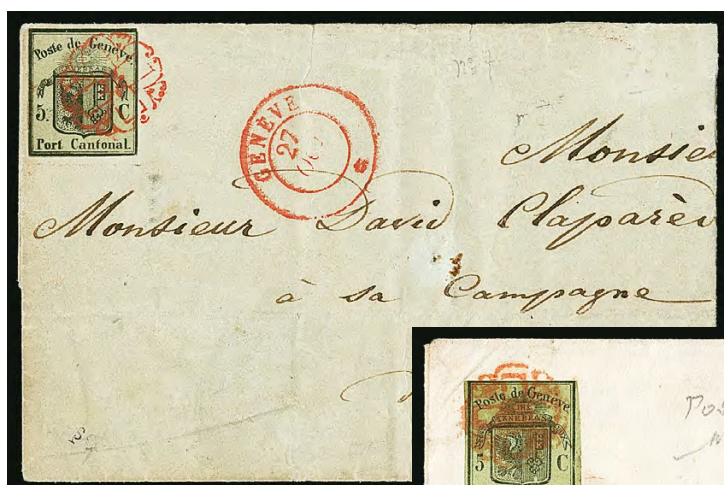 Poste de Genève.
5. C
Port Cantonal.
GENÈVE
27
No 7
Monsie
Monsieur David Claparèd
à sa Campagne
Poste de Genève
5 C